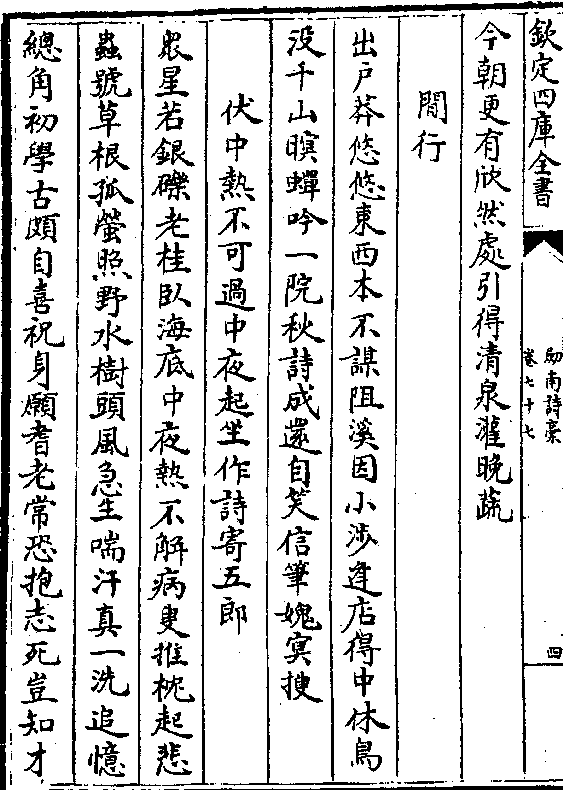 欽定四庫全書
劒南詩稾
卷七十七
四
今朝更有欣然處引得清泉灌晚蔬
閒行
出戸莽悠悠東西本不謀阻溪因小涉逢店得中休鳥
没千山暝蟬吟一院秋詩成還自笑信筆媿㝠搜
伏中熱不可過中夜起坐作詩寄五郎
衆星若銀礫老桂臥海底中夜熱不解病叟推枕起悲
蟲號草根孤螢照野水樹頭風急生喘汗真一洗追憶
總角初學古頗自喜祝身願耆老常恐抱志死豈知才